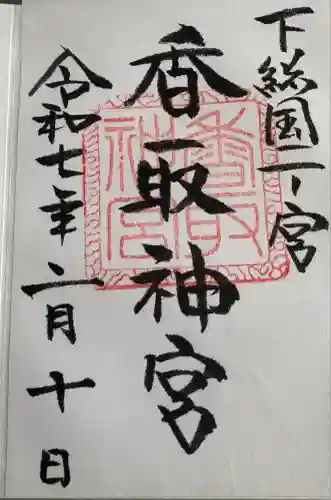 下総国一ノ宮
香取神宮
香取神宮
令和七年二月十日